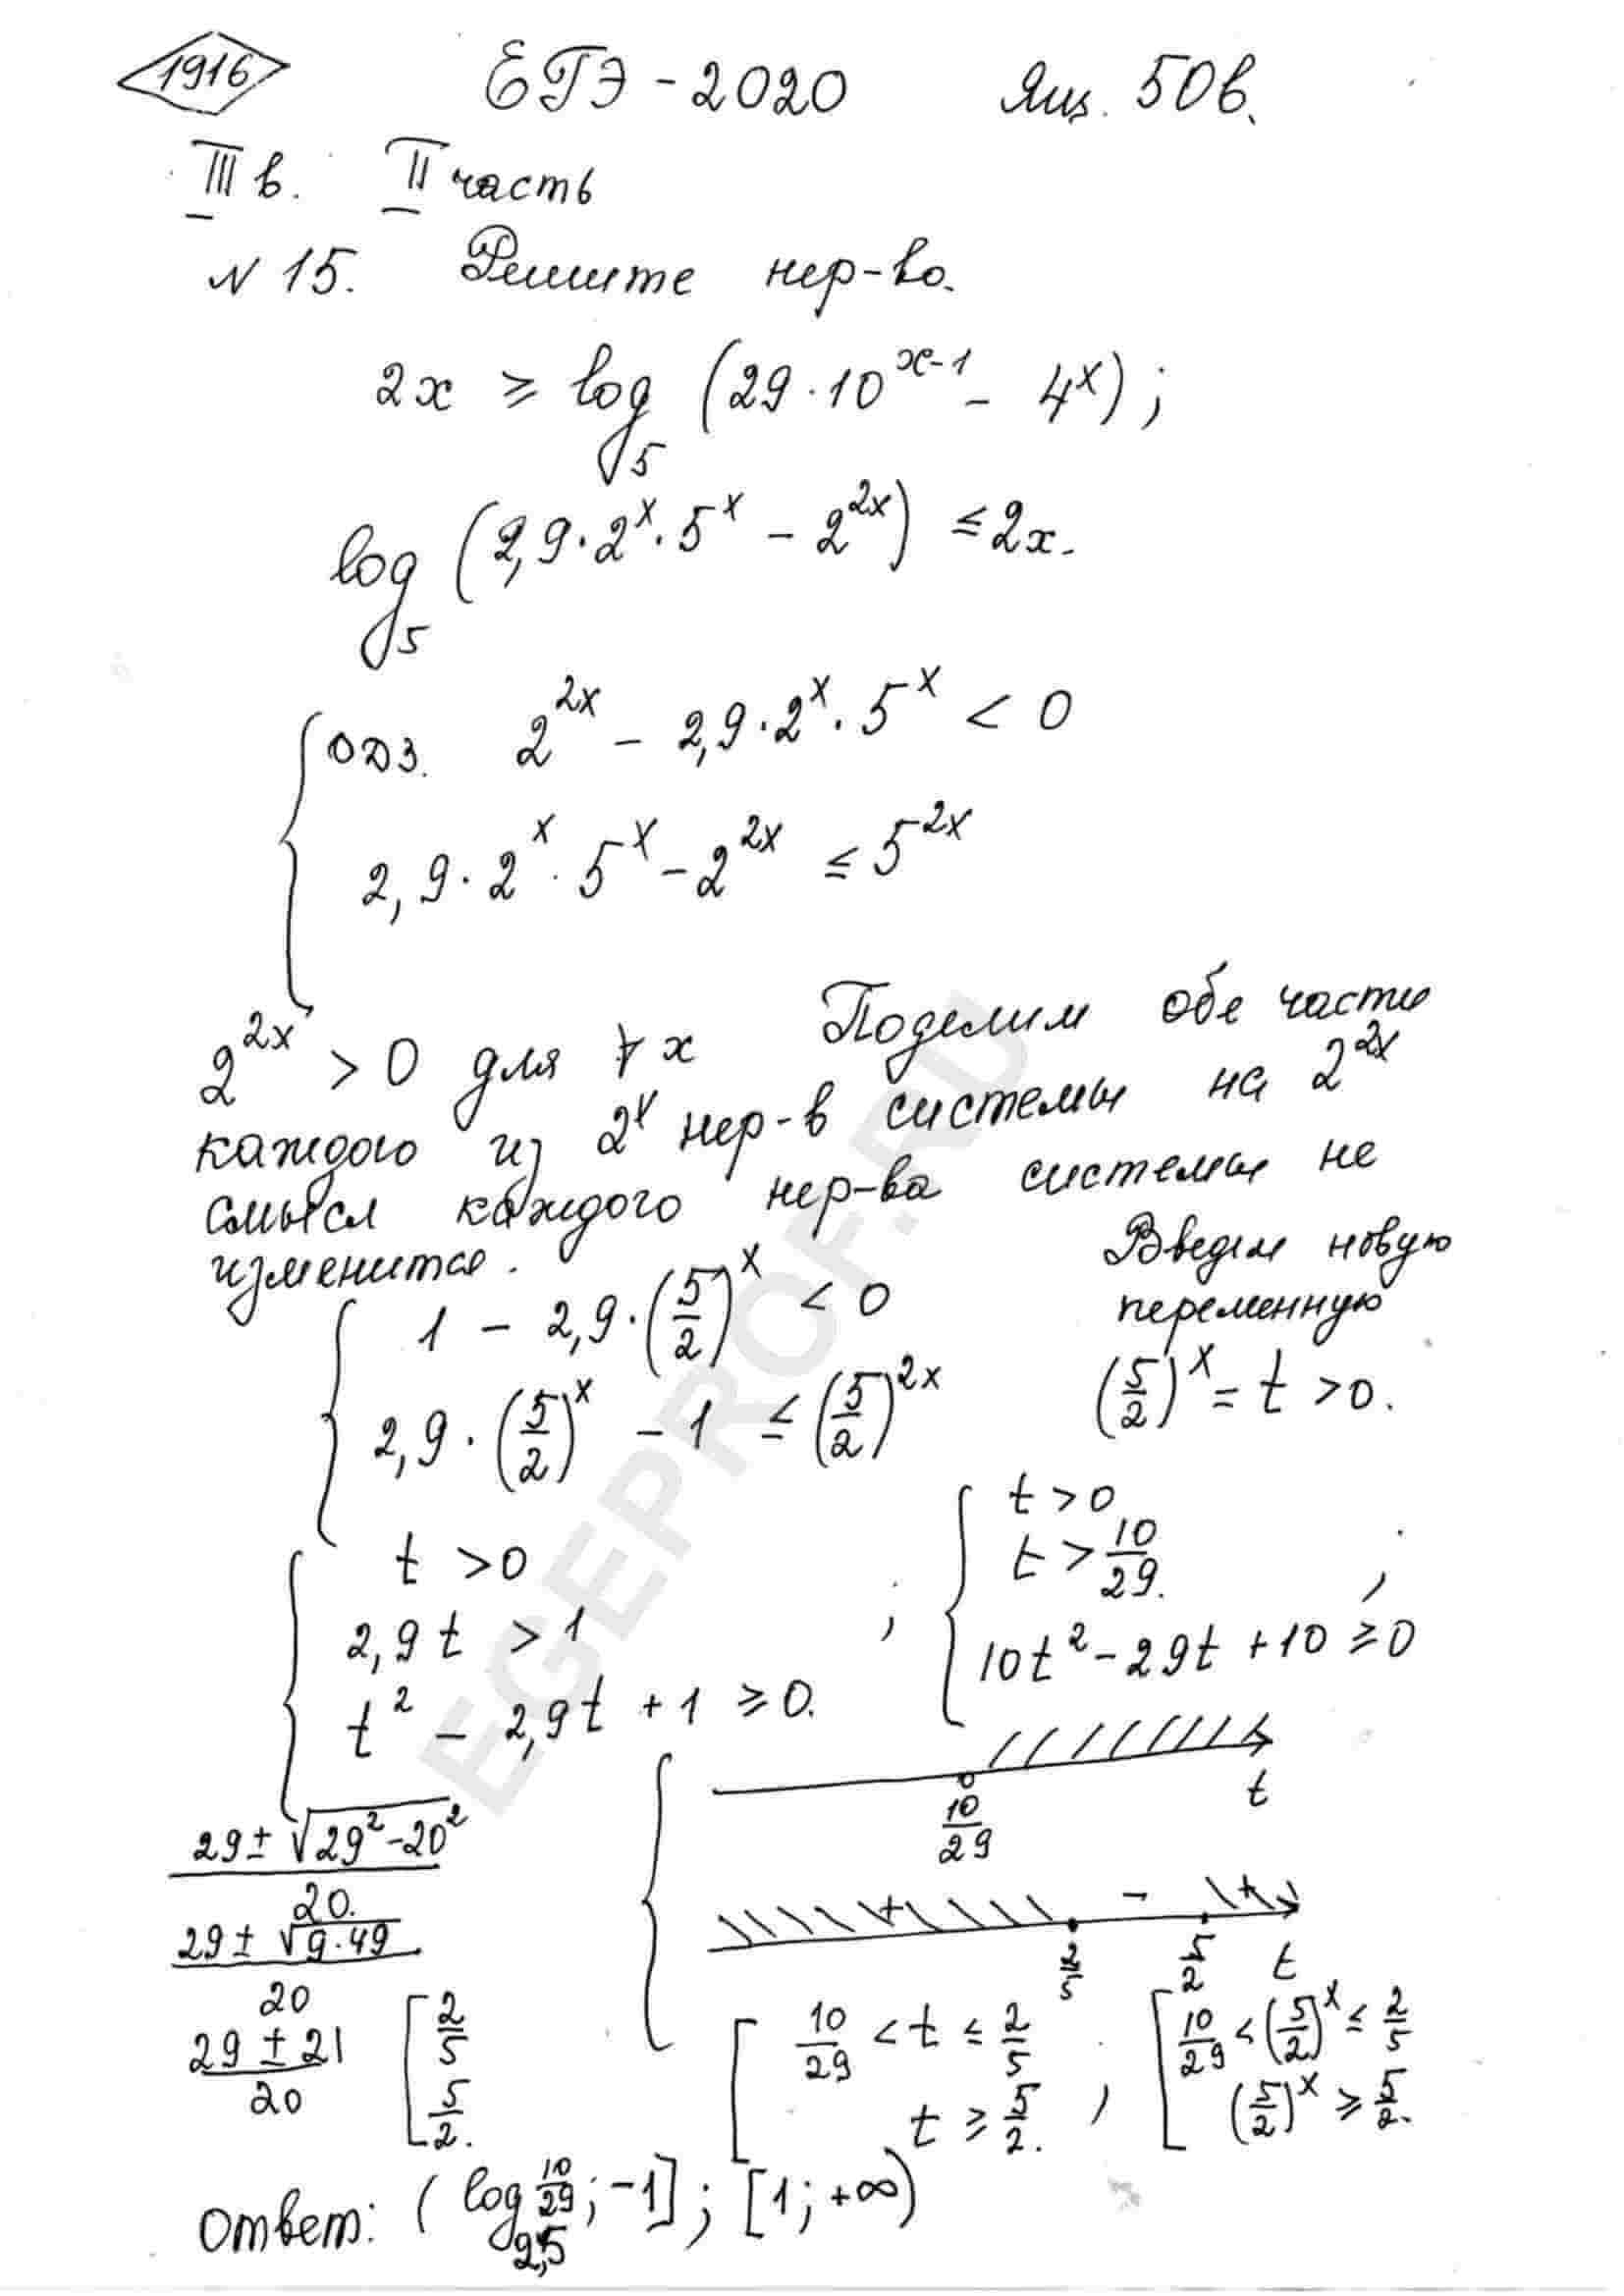 1916 ЕГЭ - 2020 Ящ. 50в.
III в. II часть
N 15. Решите нер-во.
2x ≥ log₅ (29·10^(x-1) - 4^x);
log₅ (2,9·2^x·5^x - 2^(2x)) ≤ 2x.
{ ОДЗ. 2^(2x) - 2,9·2^x·5^x < 0
2,9·2^x·5^x - 2^(2x) ≤ 5^(2x)
2^(2x) > 0 для ∀ x Поделим обе части
каждого из 2х нер-в системы на 2^(2x)
смысл каждого нер-ва системы не
изменится. Введем новую
переменную
{ 1 - 2,9·(5/2)^x < 0
2,9·(5/2)^x - 1 ≤ (5/2)^(2x) (5/2)^x = t > 0.
{ t > 0
2,9t > 1
t² - 2,9t + 1 ≥ 0. ;
{ t > 0
t > 10/29.
10t² - 29t + 10 ≥ 0 ;
(29 ± √(29² - 20²))/20.
(29 ± √(9·49))/20
(29 ± 21)/20 [ 2/5
5/2.
{ 10/29 t
+ - +
2/5 5/2 t
[ 10/29 < t ≤ 2/5
t ≥ 5/2. ;
[ 10/29 < (5/2)^x ≤ 2/5
(5/2)^x ≥ 5/2.
Ответ: (log_2,5 10/29; -1]; [1; +∞)
EGEPROF.RU